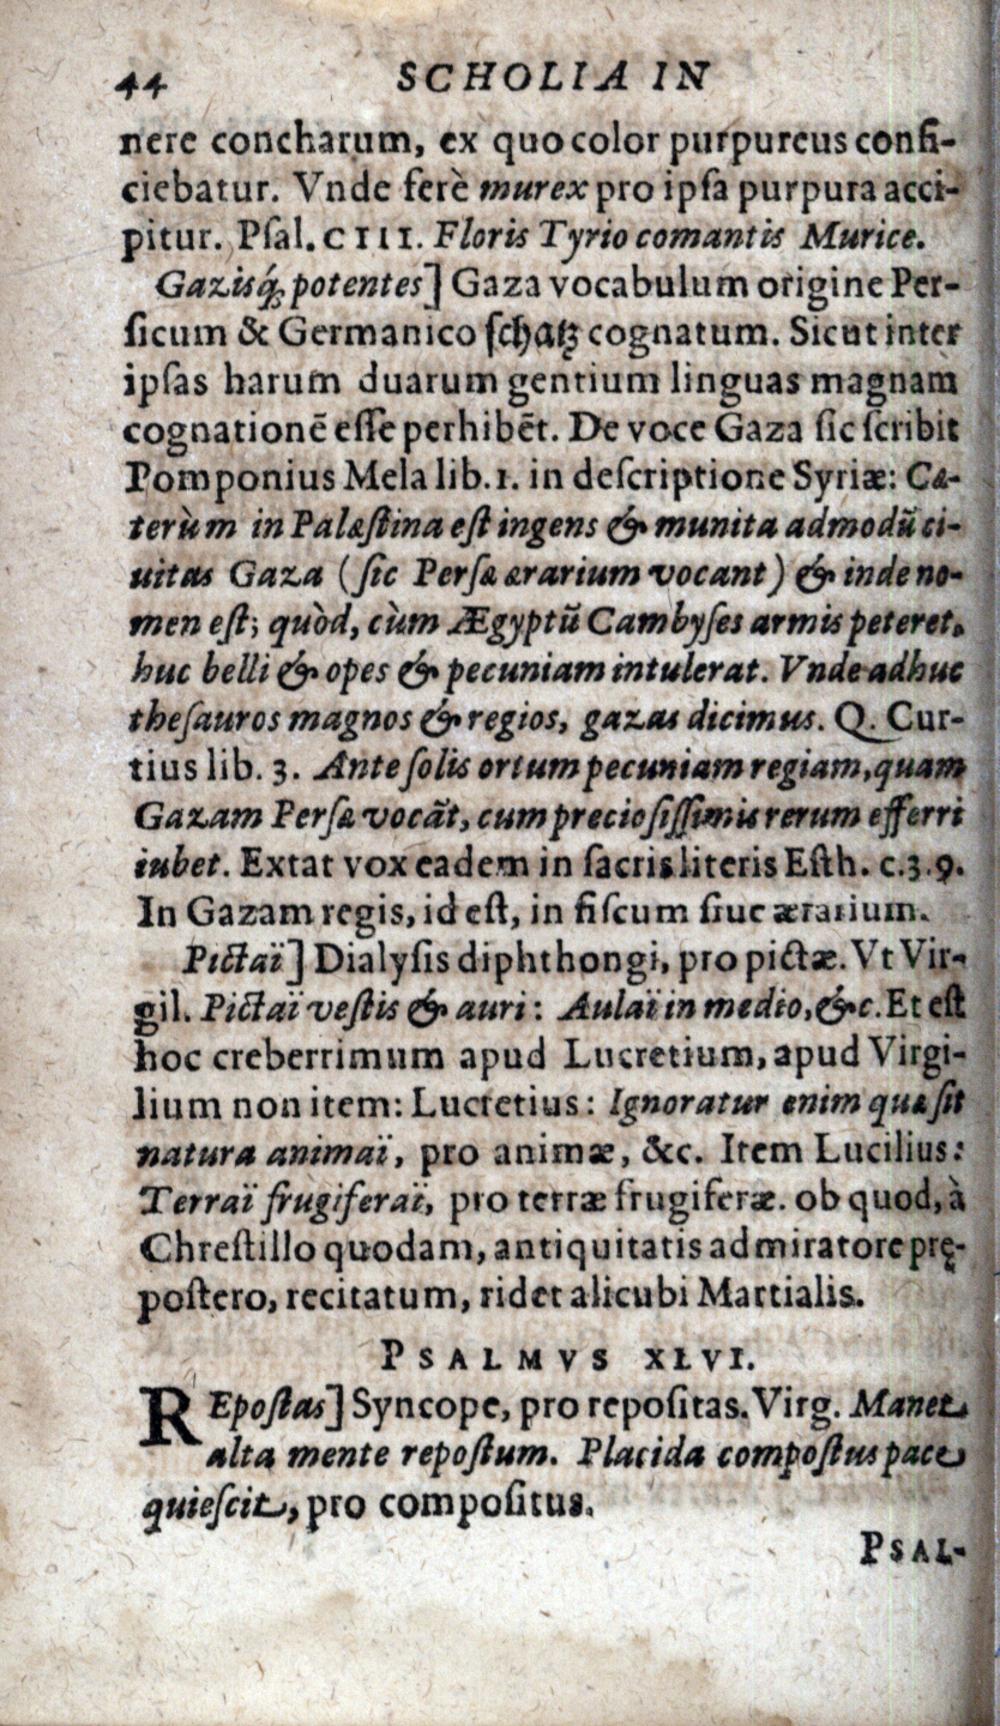 44 SCHOLIA IN
nere concharum, ex quo color purpureus confi-
ciebatur. Vnde ferè murex pro ipſa purpura acci-
pitur. Pſal. CIII. Floris Tyrio comantis Murice.
Gazisq́; potentes] Gaza vocabulum origine Per-
ſicum & Germanico ſchatz cognatum. Sicut inter
ipſas harum duarum gentium linguas magnam
cognationē eſſe perhibēt. De voce Gaza ſic ſcribit
Pomponius Mela lib. 1. in deſcriptione Syriæ: Cæ-
terùm in Palæſtina eſt ingens & munita admodũ ci-
uitas Gaza (ſic Perſæ ærarium vocant) & inde no-
men eſt; quòd, cùm Ægyptũ Cambyſes armis peteret,
huc belli & opes & pecuniam intulerat. Vnde adhuc
theſauros magnos & regios, gazas dicimus. Q. Cur-
tius lib. 3. Ante ſolis ortum pecuniam regiam, quam
Gazam Perſæ vocãt, cum precioſiſſimis rerum efferri
iubet. Extat vox eadem in ſacris literis Eſth. c.3.9.
In Gazam regis, id eſt, in fiſcum ſiue ærarium.
Pictaï] Dialyſis diphthongi, pro pictæ. Vt Vir-
gil. Pictaï veſtis & auri: Aulaï in medio, &c. Et eſt
hoc creberrimum apud Lucretium, apud Virgi-
lium non item: Lucretius: Ignoratur enim quæ ſit
natura animaï, pro animæ, &c. Item Lucilius:
Terraï frugiferaï, pro terræ frugiferæ. ob quod, à
Chreſtillo quodam, antiquitatis admiratore prę-
poſtero, recitatum, ridet alicubi Martialis.
PSALMVS XLVI.
REpoſtas] Syncope, pro repoſitas. Virg. Manet
alta mente repoſtum. Placida compoſtus pace
quieſcit, pro compoſitus.
PSAL-